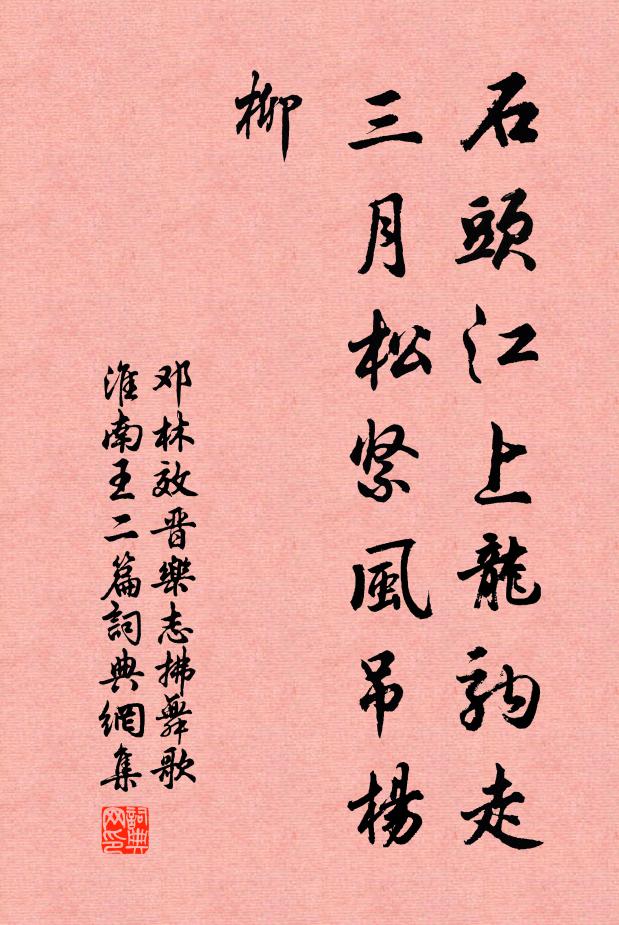 石頭江上龍駒走
三月松緊風吊楊
柳
邓林效晋樂志拂舞歌
淮南王二篇詞典網集
詞典网印